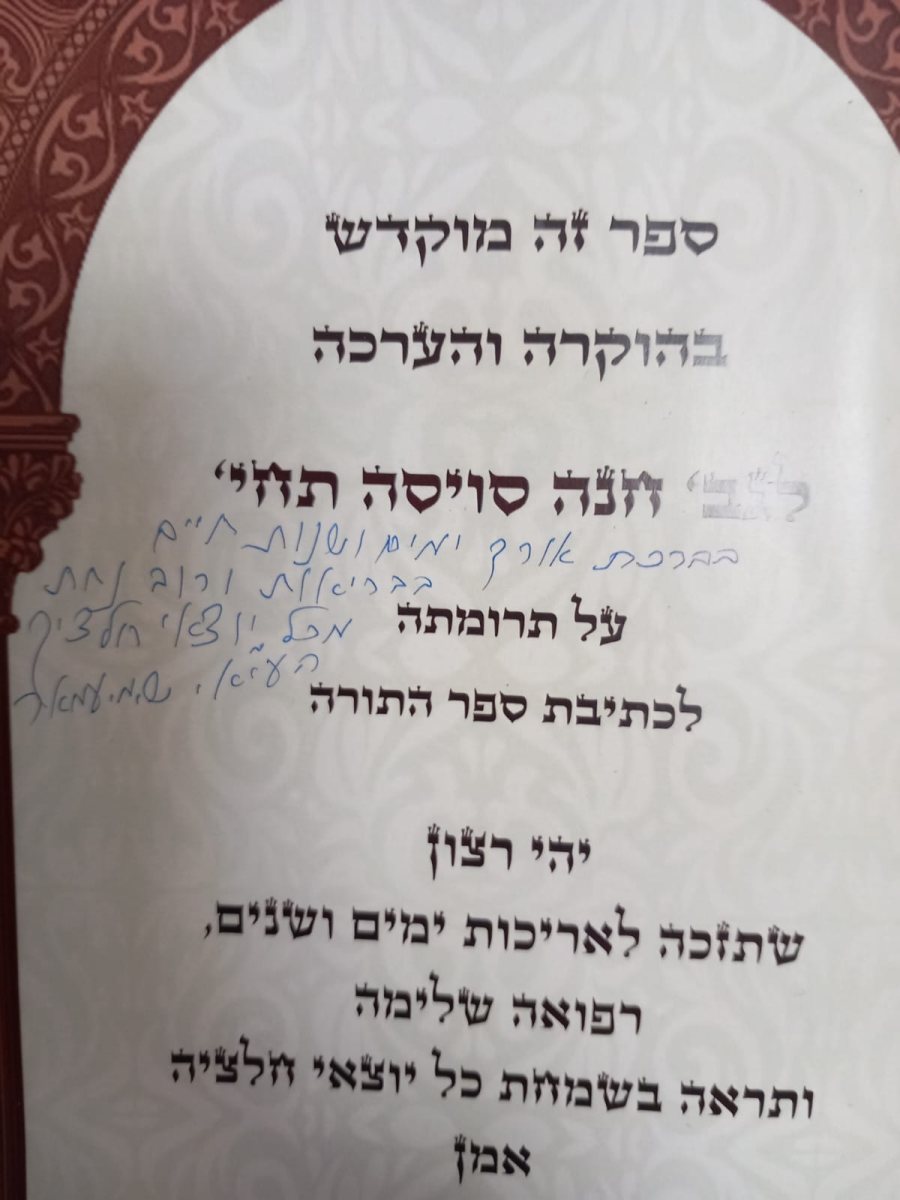 ספר זה מוקדש
בהוקרה והערכה
לגב' חנה סויסה תחי'
בברכת אורך ימים ושנות חיים
בבריאות ורוב נחת
מכל יוצאי חלציך
על תרומתה
לכתיבת ספר התורה
יהי רצון
שתזכה לאריכות ימים ושנים,
רפואה שלימה
ותראה בשמחת כל יוצאי חלציה
אמן